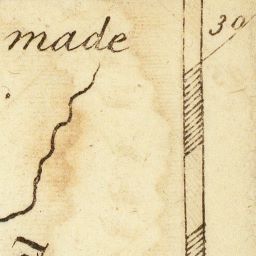 made
30